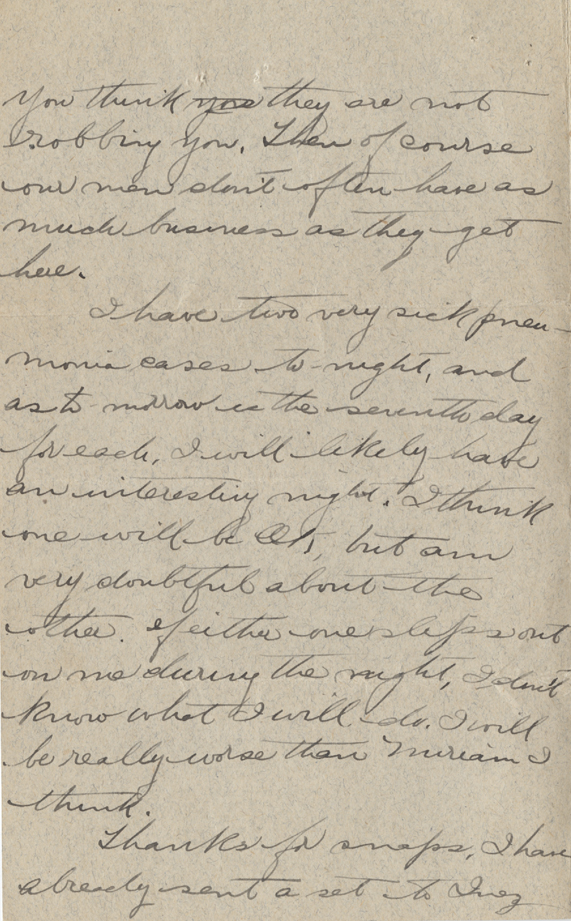 You think ~~you~~ they are not
robbing you. Then of course
our men don't often have as
much business as they get
here.
I have two very sick pneu-
monia cases to-night, and
as to-morrow is the seventh day
for each, I will likely have
an interesting night. I think
one will be O.K., but am
very doubtful about the
other. If either one slips out
on me during the night, I don't
know what I will do. I will
be really worse than Miriam I
think.
Thanks for snaps, I have
already sent a set to Inez